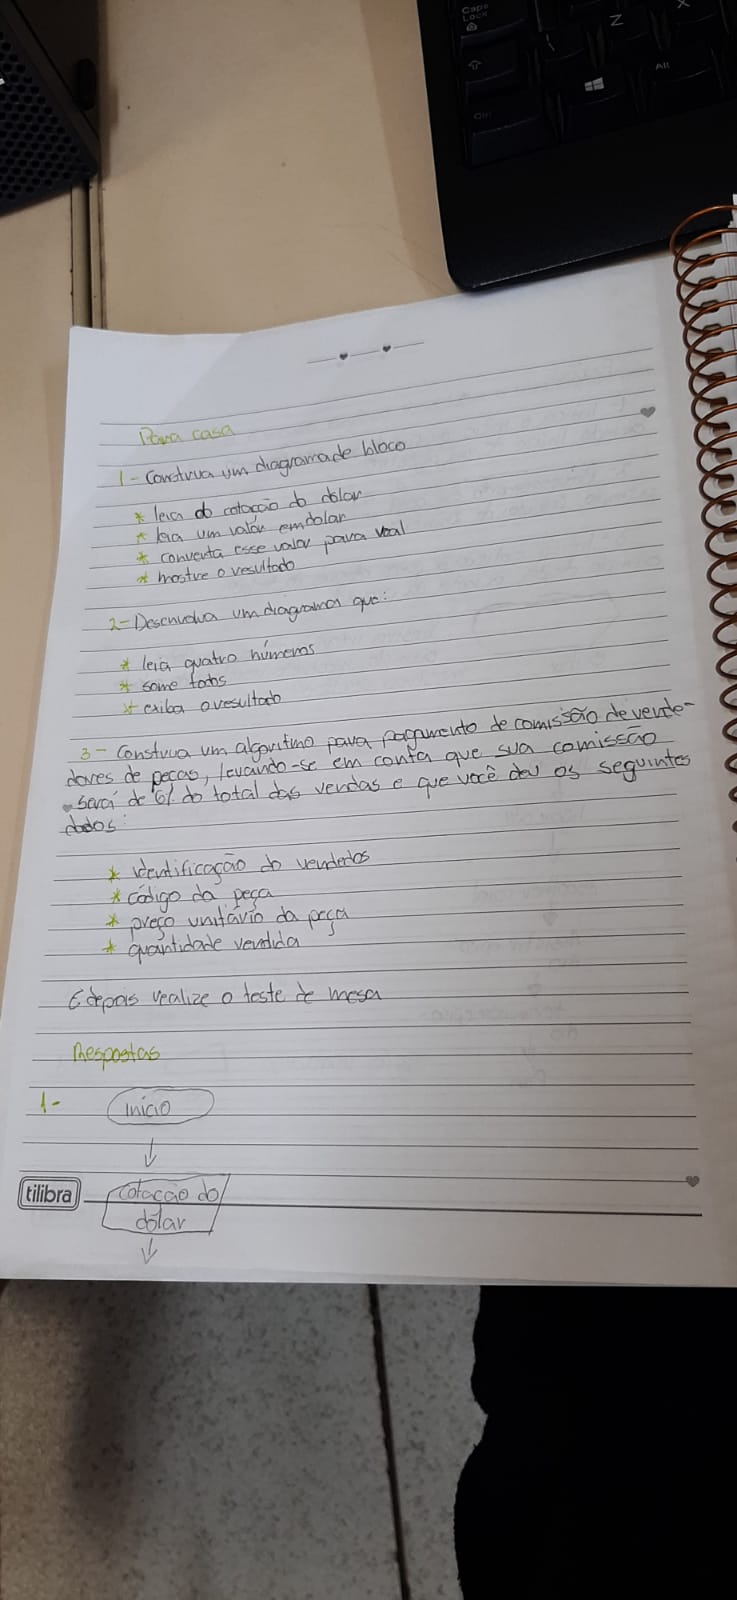 Caps
Lock
Z
X
Alt
Ctrl
Para casa
1- Construa um diagrama de bloco
* leia do cotacão do dolar
* leia um valor em dolar
* converta esse valor para real
* mostre o resultado
2- Desenvolva um diagrama que:
* leia quatro números
* some todos
* exiba o resultado
3 - Construa um algoritmo para pagamento de comissão de vende-
dores de pecas, levando-se em conta que sua comissão
será de 6% do total das vendas e que você deu os seguintes
dados:
* identificação do vendedos
* código da peça
* preço unitário da peça
* quantidade vendida
E depois realize o teste de mesa
Respostas
1-
início
cotacção do
dólar
tilibra